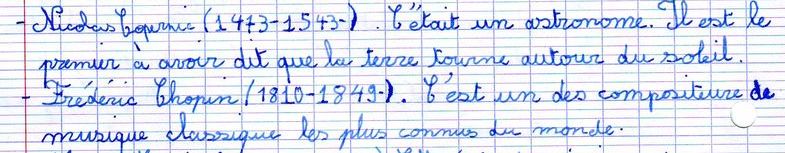 - Nicolas Copernic (1473-1543-). C'était un astronome. Il est le
premier à avoir dit que la terre tourne autour du soleil.
- Frédéric Chopin (1810-1849-). C'est un des compositeurs de
musique classique les plus connus du monde.